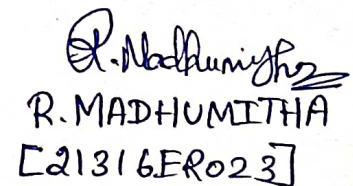 R. Madhumitha
R. MADHUMITHA
[21316ER023]